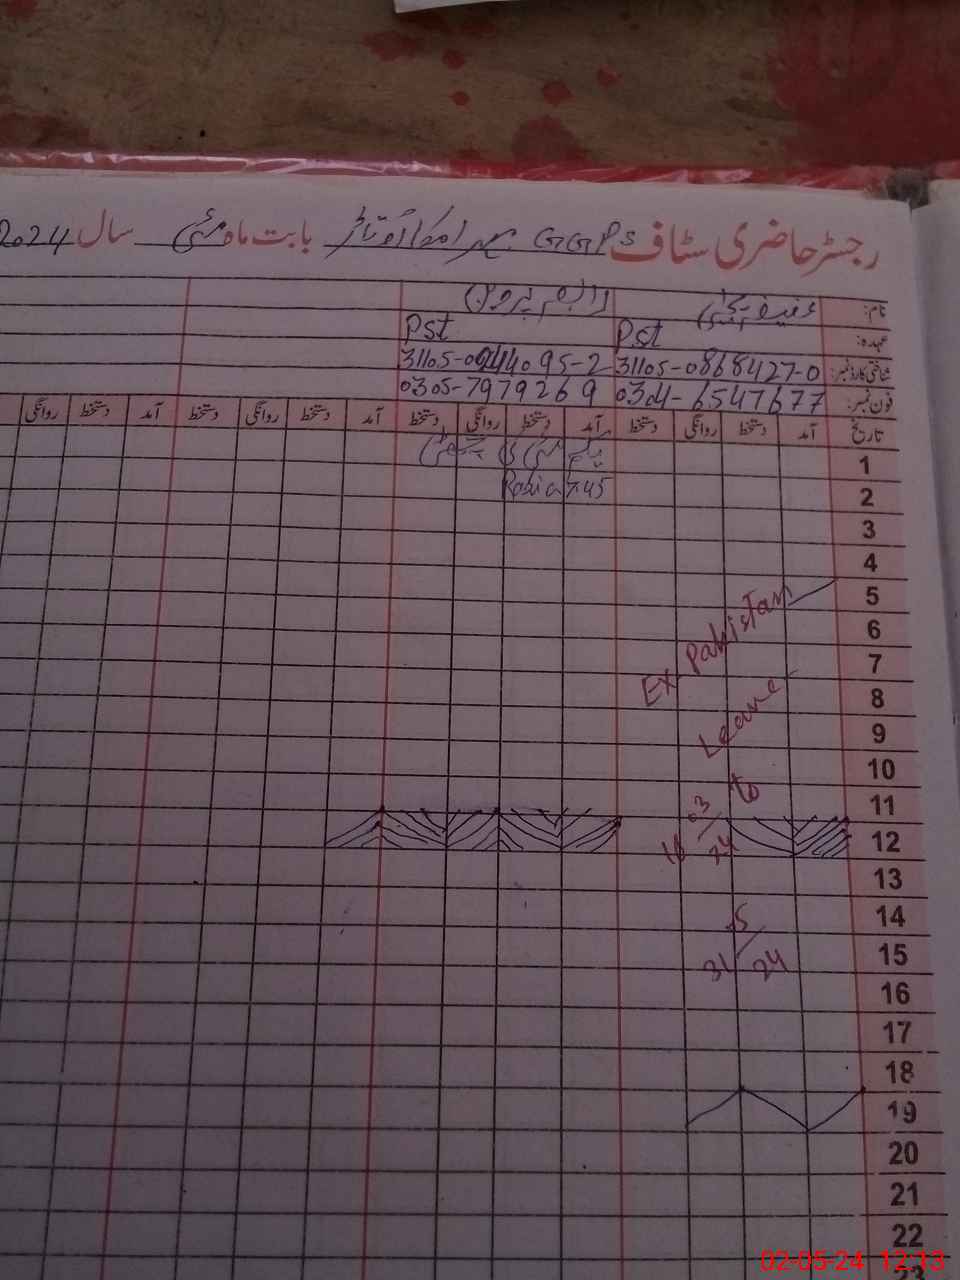 رجسٹر حاضری سٹاف GGPS بابت ماہ مئی سال 2024
نام:
عہدہ: Pst Pst
شناختی کارڈ نمبر: 31105-0868427-0 31105-0944095-2
فون نمبر: 0304-6547677 0305-7979269
تاریخ آمد دستخط روانگی دستخط آمد دستخط روانگی دستخط آمد دستخط روانگی دستخط آمد دستخط روانگی
1 یکم مئی کی چھٹی
2 7:45 Rabia
3
4
5
Ex Pakistan
6
7
8
Leave
9
10
to
11
18/03/24
12
13
14
31/5/24
15
16
17
18
19
20
21
22
23
02-05-24 12:13